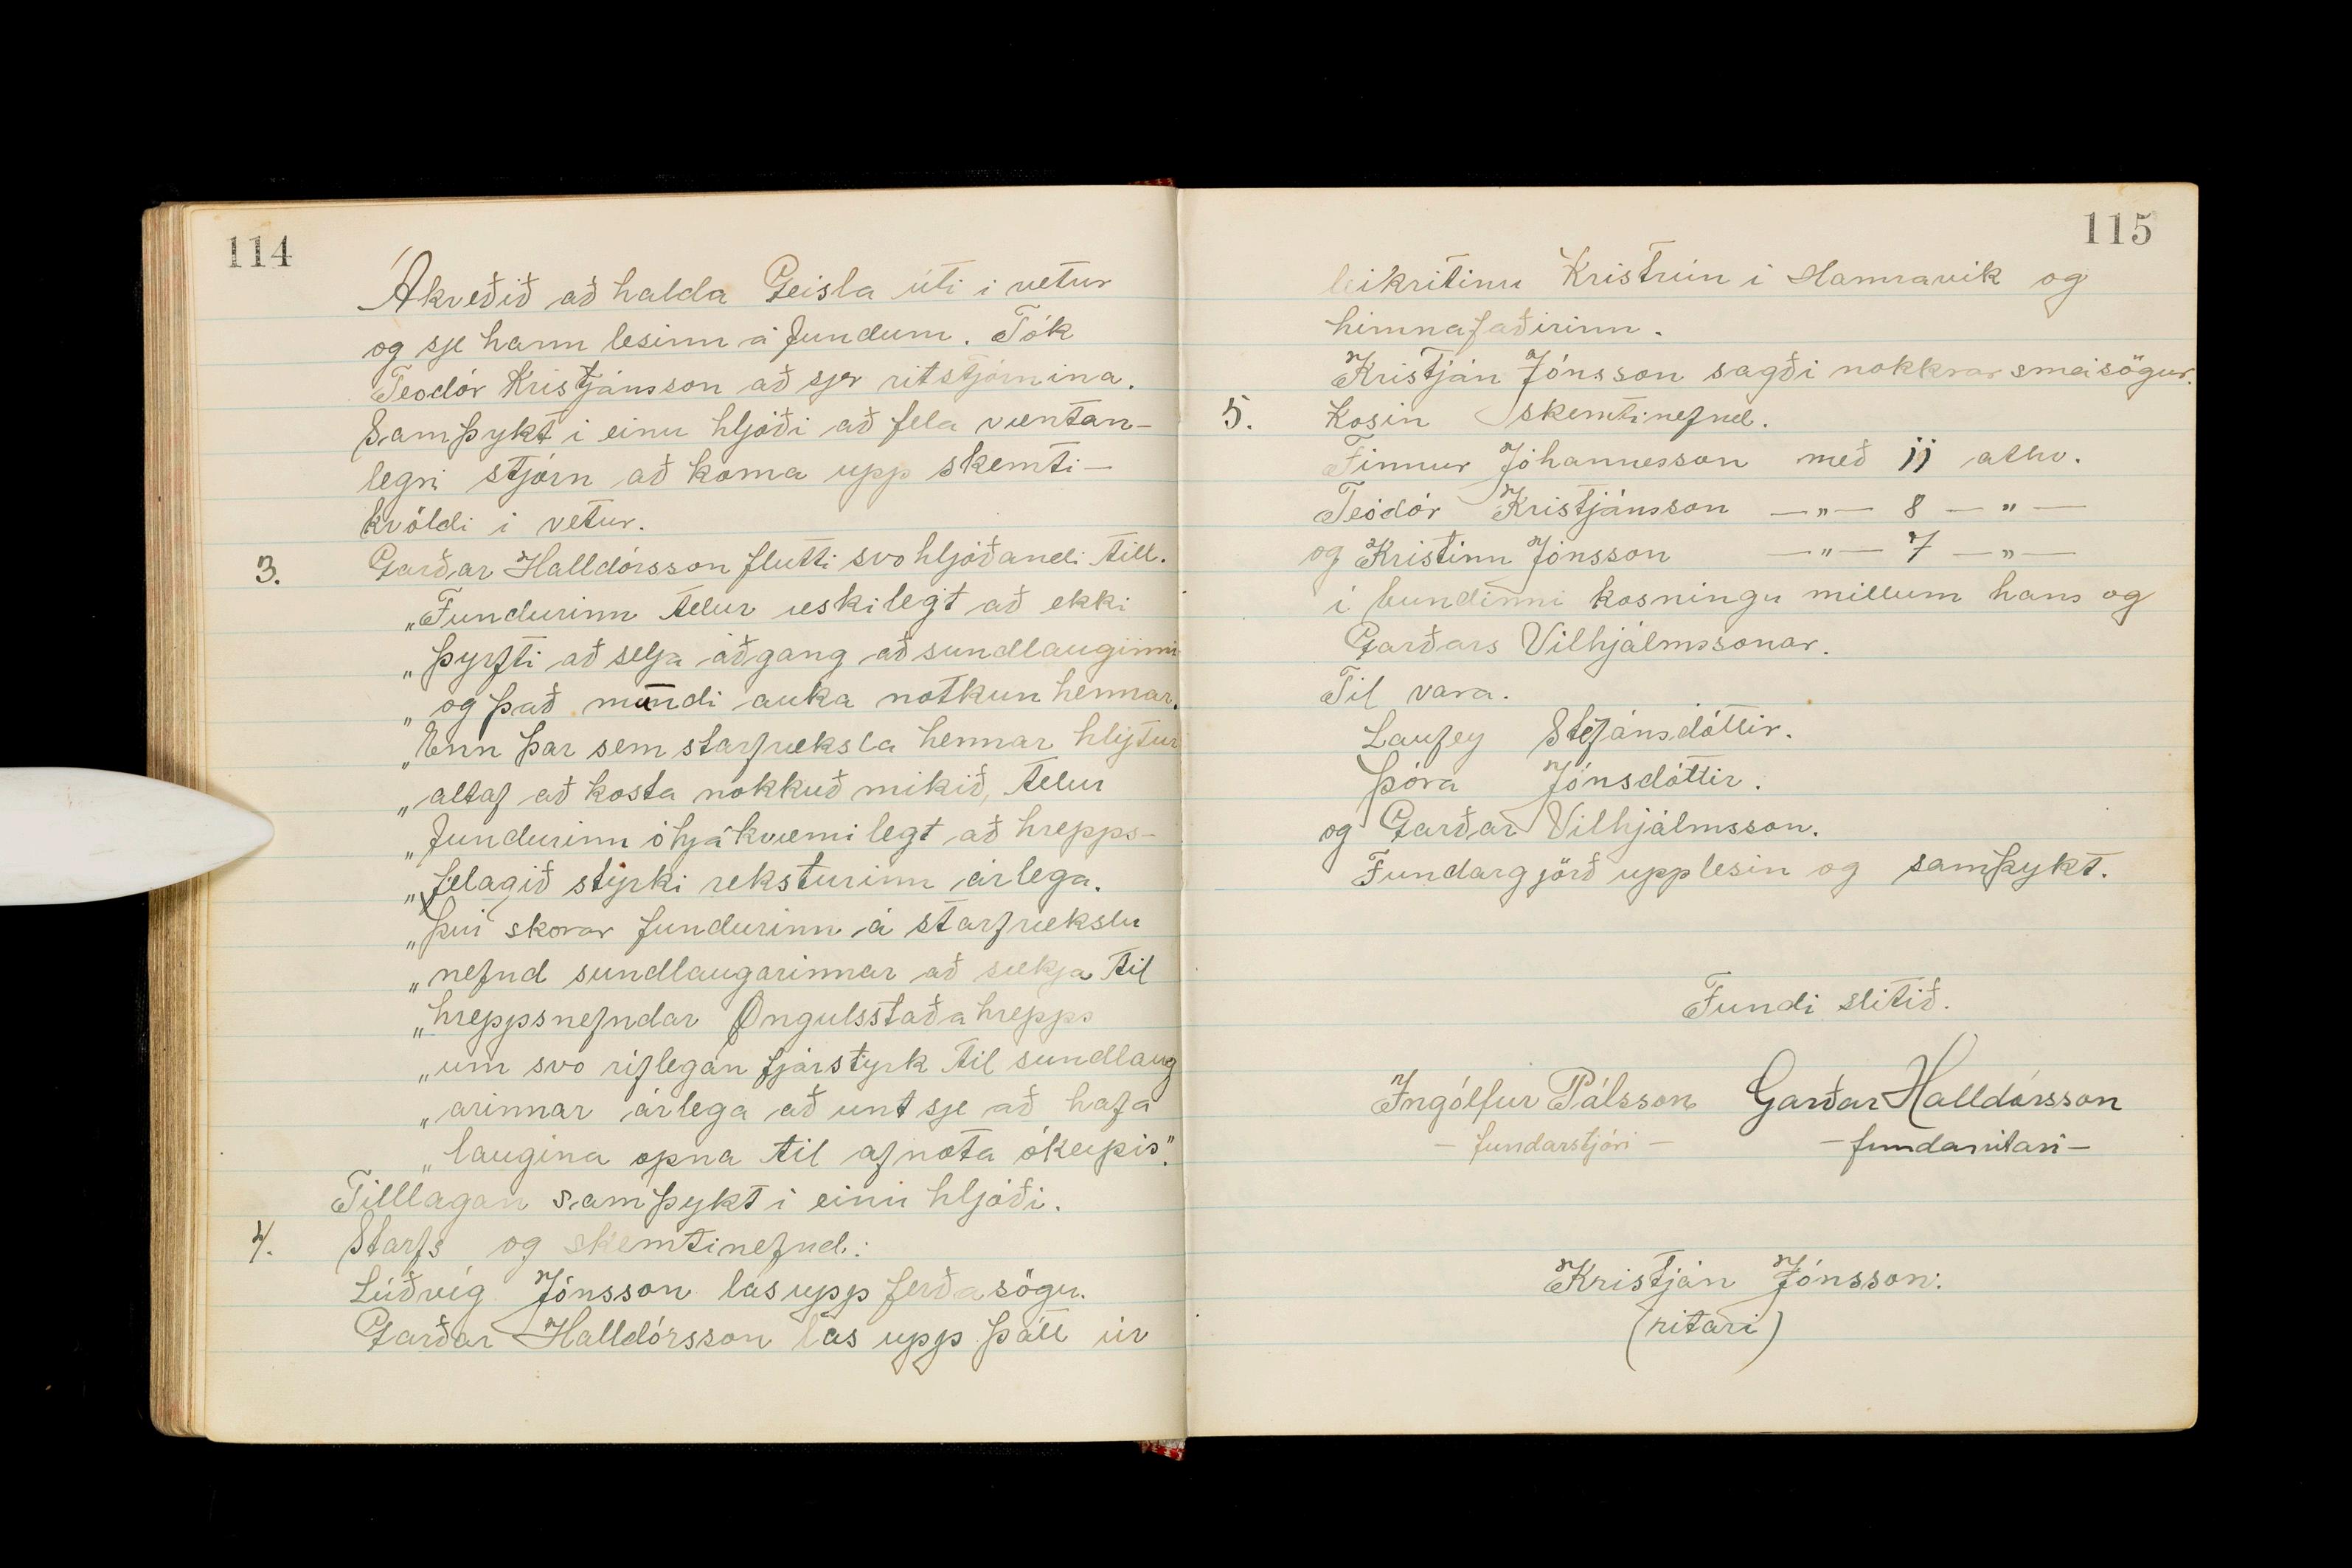 114
Ákveðið að halda Geisla úti í vetur
og sje hann lesinn á fundum. Tók
Teodór Kristjánsson að sjer ritstjórnina.
Samþykt í einu hljóði að fela væntan-
legri stjórn að koma upp skemti-
kvöldi í vetur.
3. Garðar Halldórsson flutti svohljóðandi till.
„Fundurinn telur æskilegt að ekki
„þyrfti að selja aðgang að sundlauginni
„og það mundi auka notkun hennar.
„Enn þar sem starfræksla hennar hlýtur
„altaf að kosta nokkuð mikið, telur
„fundurinn óhjákvæmilegt að hrepps-
„felagið styrki reksturinn árlega.
„Því skorar fundurinn á starfrækslu
„nefnd sundlaugarinnar að sækja til
„hreppsnefndar Öngulsstaðahrepps
„um svo ríflegan fjárstyrk til sundlaug
„arinnar árlega að unt sje að hafa
„laugina opna til afnota ókeypis."
Tilllagan samþykt í einu hljóði.
4. Starfs og skemtinefnd:
Lúðvíg Jónsson las upp ferðasögu.
Garðar Halldórsson las upp þátt úr
115
leikritinu Kristrún í Hamravík og
himnafaðirinn.
Kristján Jónsson sagði nokkrar smásögur.
5. Kosin skemtinefnd.
Finnur Jóhannesson með 11 atkv.
Teódór Kristjánsson —„— 8 —„—
og Kristinn Jónsson —„— 7 —„—
í bundinni kosningu millum hans og
Garðars Vilhjálmssonar.
Til vara.
Laufey Stefánsdóttir.
Þóra Jónsdóttir.
og Garðar Vilhjálmsson.
Fundargjörð upplesin og samþykt.
Fundi slitið.
Ingólfur Pálsson Garðar Halldórsson
– fundarstjóri – – fundarritari –
Kristján Jónsson.
(ritari)